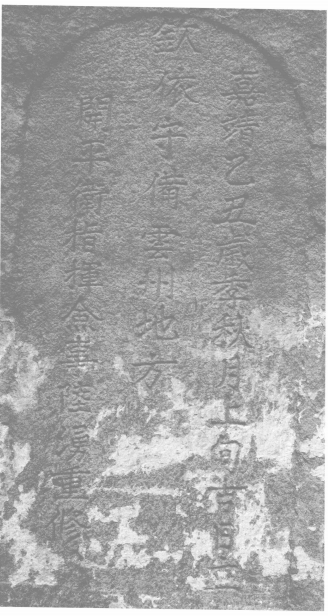 嘉靖乙丑歲季秋月上旬吉日立
欽依守備雲州地方
開平衛指揮僉事陸重修